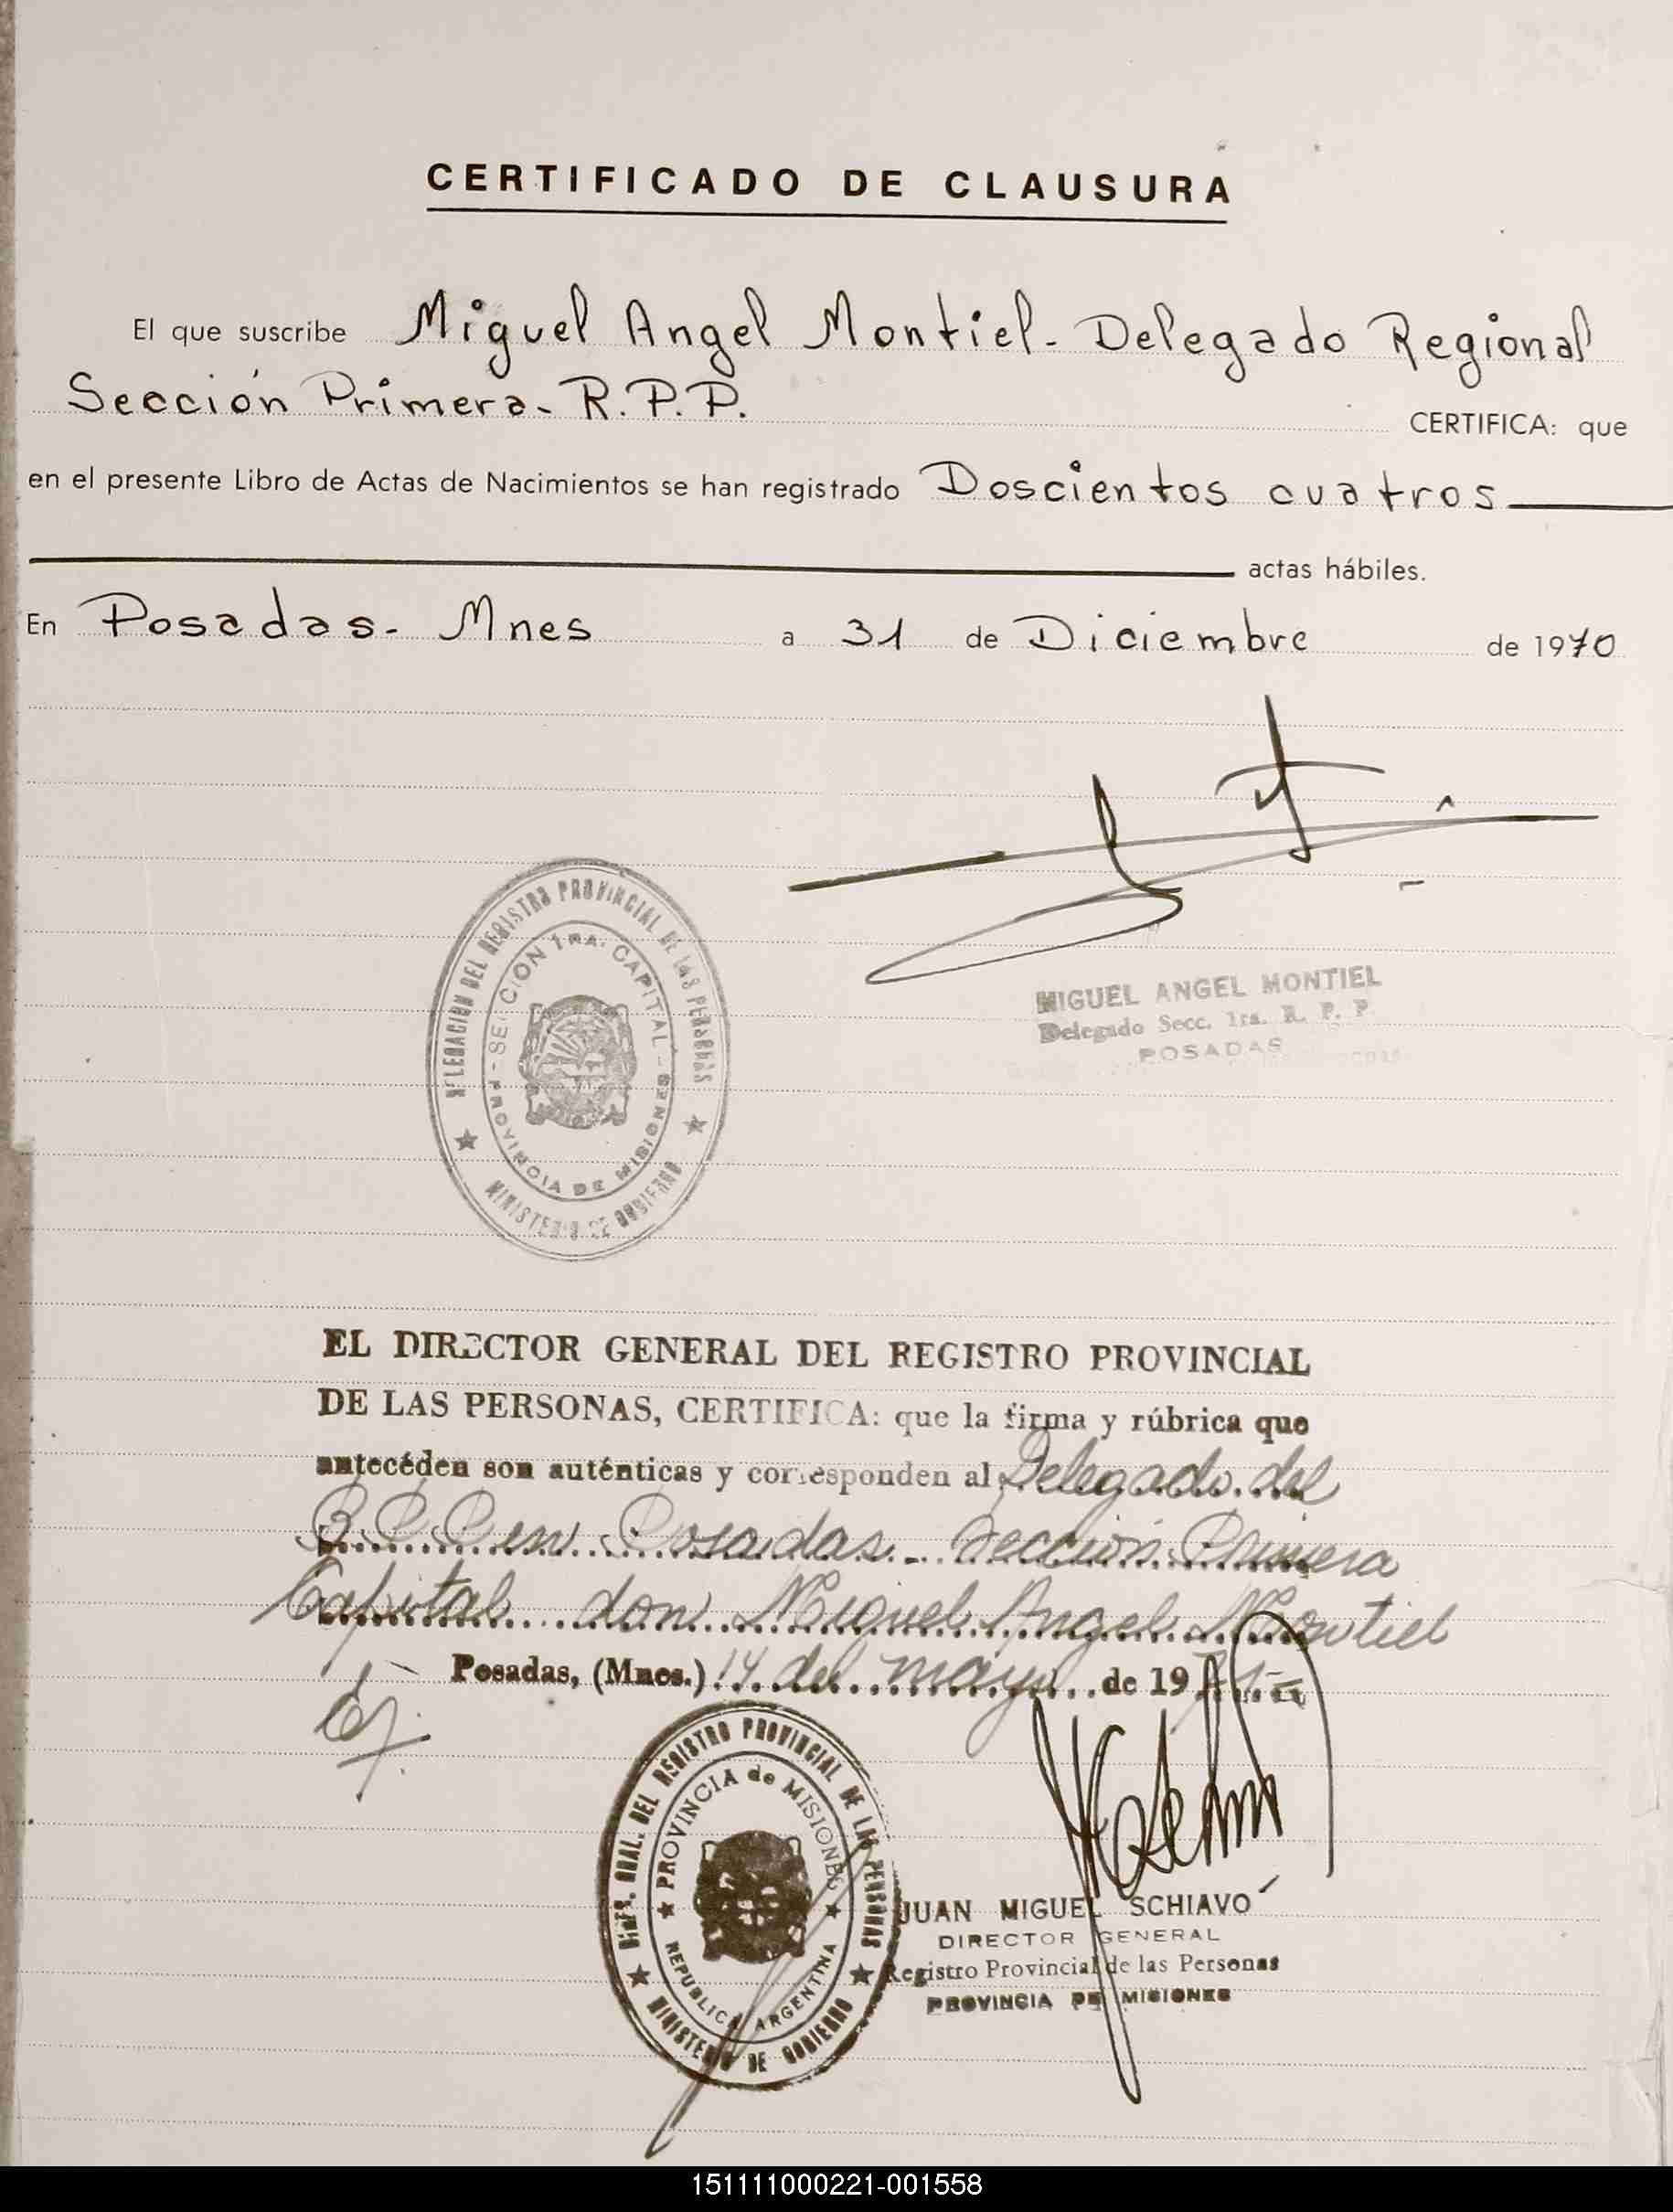 CERTIFICADO DE CLAUSURA
El que suscribe Miguel Angel Montiel - Delegado Regional
Sección Primera - R.P.P. CERTIFICA: que
en el presente Libro de Actas de Nacimientos se han registrado Doscientos cuatros
actas hábiles.
En Posadas - Mnes a 31 de Diciembre de 1970
DELEGACION DEL REGISTRO PROVINCIAL DE LAS PERSONAS
SECCION 1RA. CAPITAL
PROVINCIA DE MISIONES
MINISTERIO DE GOBIERNO
MIGUEL ANGEL MONTIEL
Delegado Secc. 1ra. R. P. P.
POSADAS
EL DIRECTOR GENERAL DEL REGISTRO PROVINCIAL
DE LAS PERSONAS, CERTIFICA: que la firma y rúbrica que
antecéden son auténticas y corresponden al Delegado del
R.P.P. en Posadas - Sección Primera
Capital don Miguel Angel Montiel
Posadas, (Mnes.) 14 de mayo de 1971
DIREC. GRAL. DEL REGISTRO PROVINCIAL DE LAS PERSONAS
PROVINCIA de MISIONES
REPUBLICA ARGENTINA
MINISTERIO DE GOBIERNO
JUAN MIGUEL SCHIAVO
DIRECTOR GENERAL
Registro Provincial de las Personas
PROVINCIA DE MISIONES
151111000221-001558